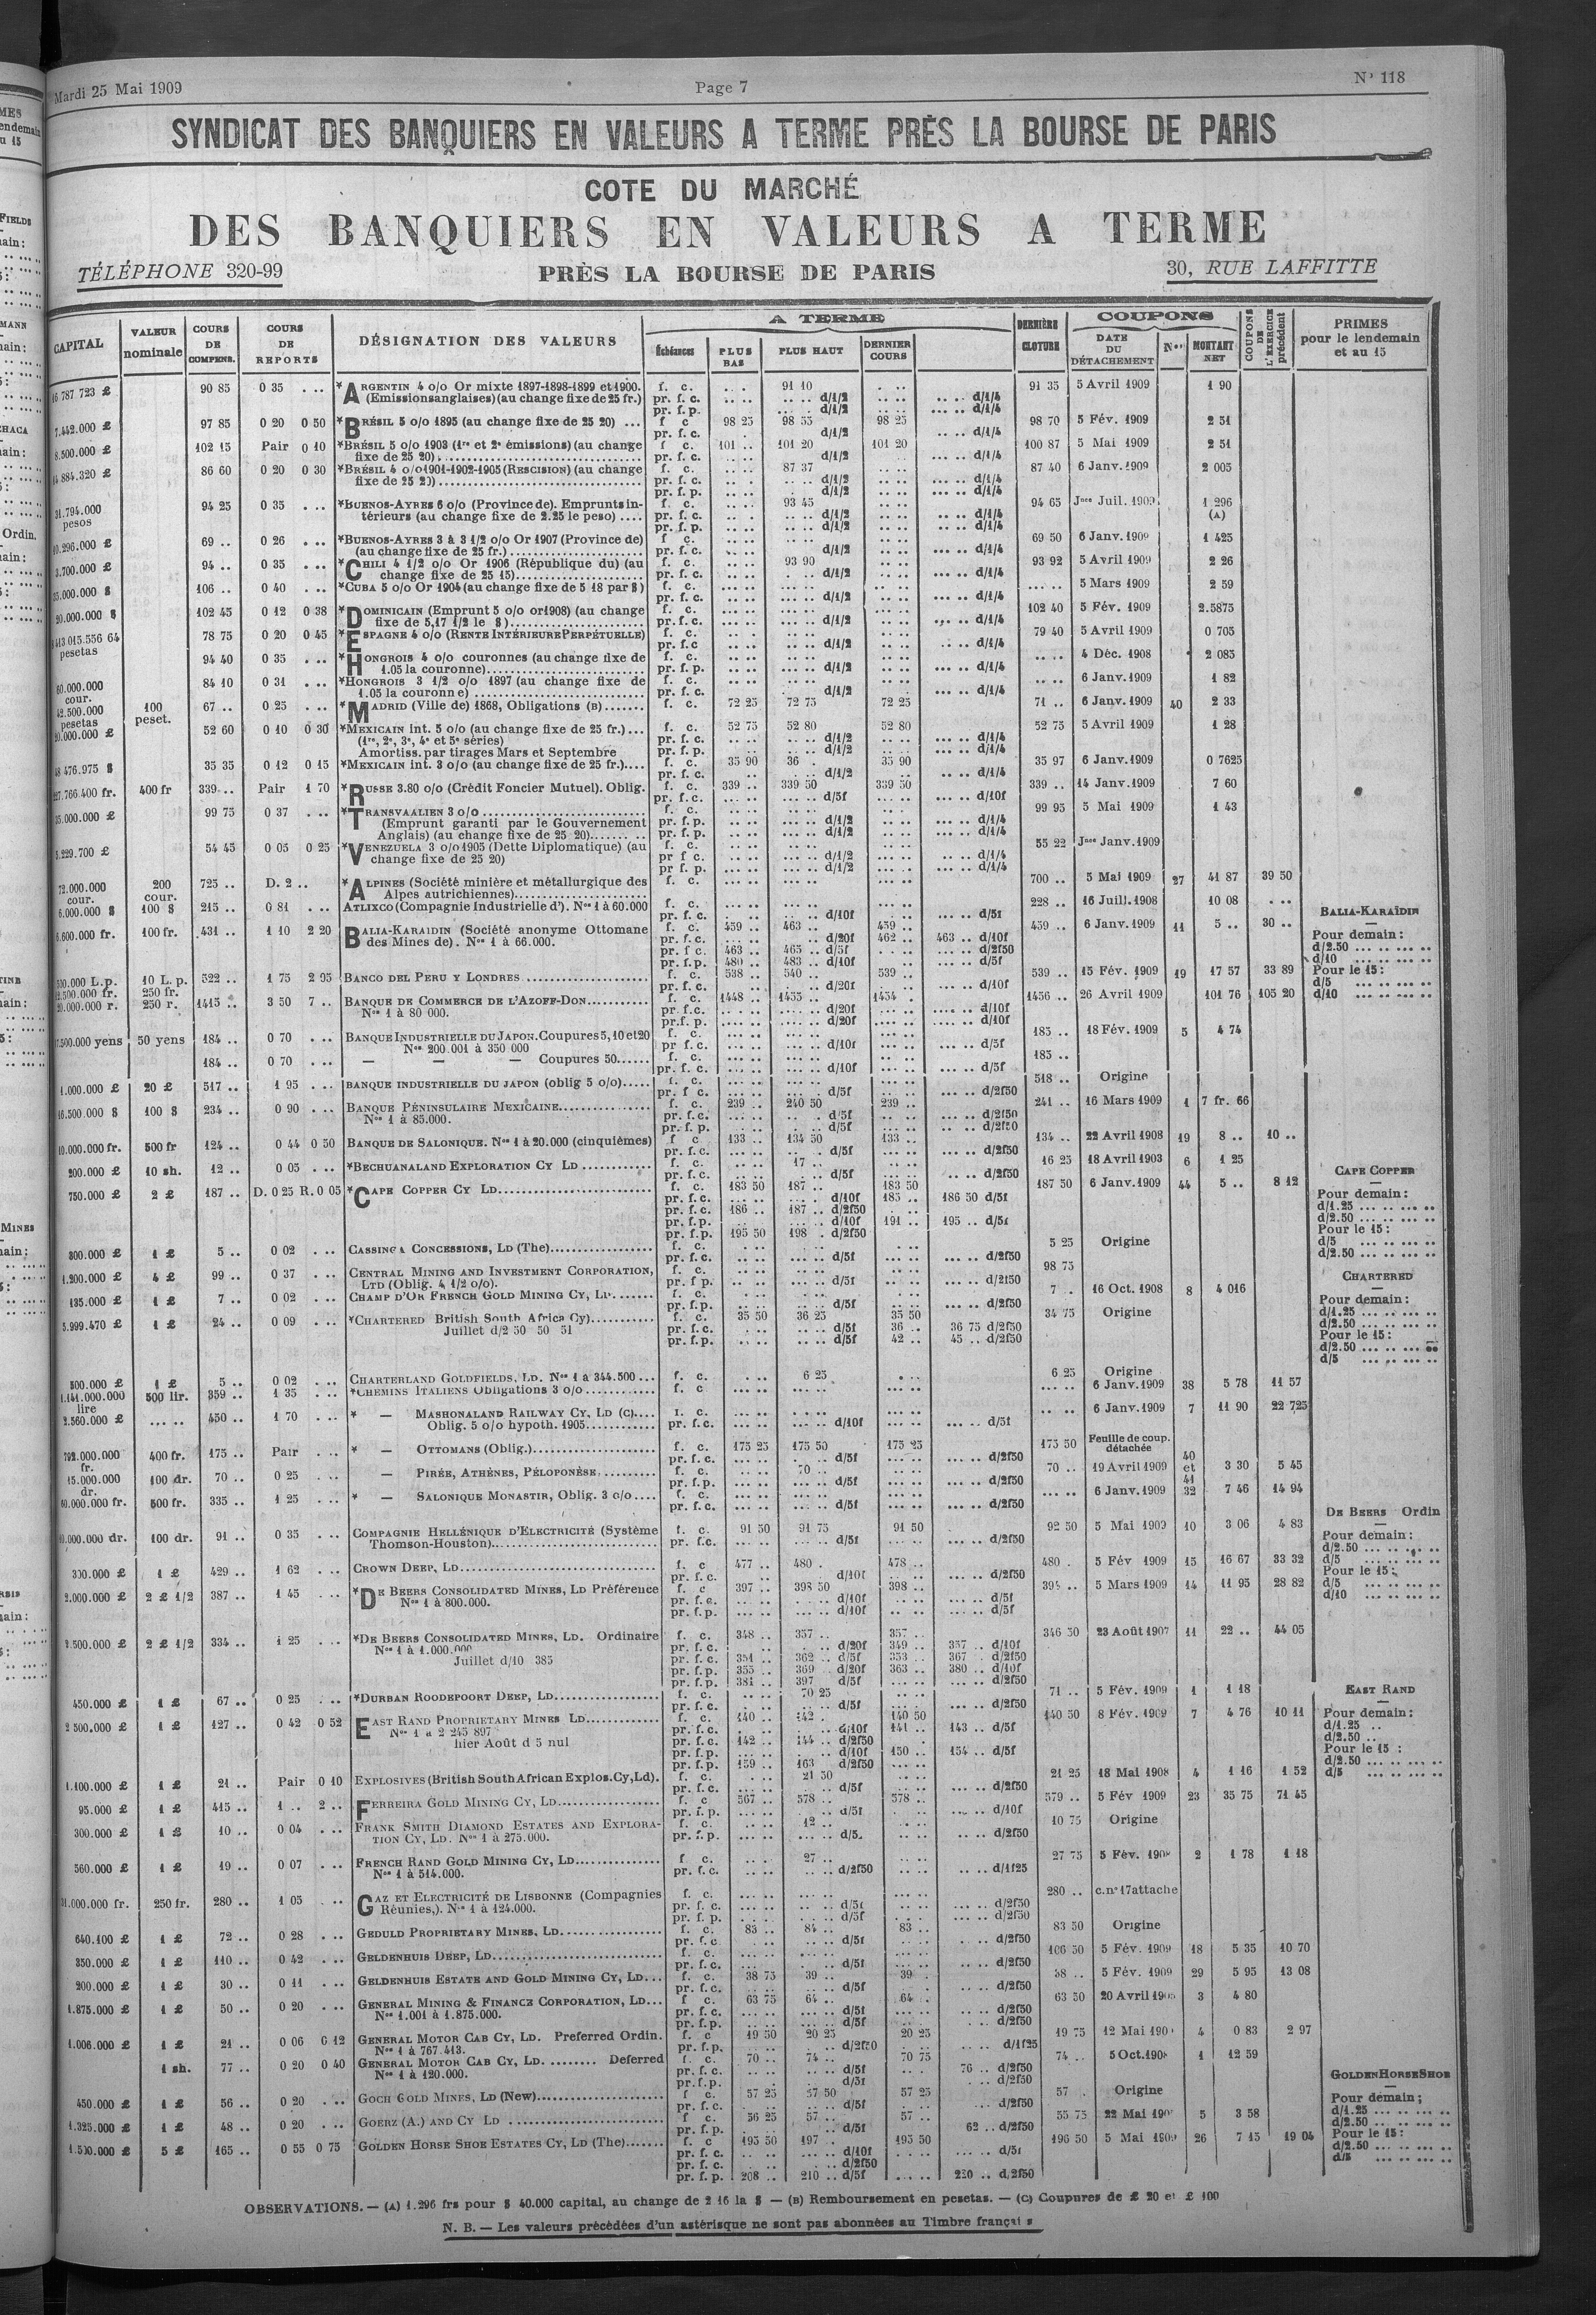 Mardi 25 Mai 1909 Page 7 N° 118
SYNDICAT DES BANQUIERS EN VALEURS A TERME PRÈS LA BOURSE DE PARIS
COTE DU MARCHÉ
DES BANQUIERS EN VALEURS A TERME
TÉLÉPHONE 320-99 PRÈS LA BOURSE DE PARIS 30, RUE LAFFITTE
CAPITAL VALEUR nominale COURS DE COMPENS. COURS DE REPORTS DÉSIGNATION DES VALEURS A TERME Échéances PLUS BAS PLUS HAUT DERNIER COURS DERNIÈRE CLOTURE COUPONS DATE DU DÉTACHEMENT Nos MONTANT NET COUPONS DE L'EXERCICE précédent PRIMES pour le lendemain et au 15
90 85 0 35 . .. *ARGENTIN 4 o/o Or mixte 1897-1898-1899 et 1900. f. c. 91 10 91 35 5 Avril 1909 1 90
(Emissions anglaises) (au change fixe de 25 fr.) pr. f. c. d/1/2 d/1/4
pr. f. p. d/1/2 d/1/4
7.442.000 £ 97 85 0 20 0 50 *BRÉSIL 5 o/o 1895 (au change fixe de 25 20) ... f c 98 25 98 55 98 25 98 70 5 Fév. 1909 2 51
pr. f. c. d/1/2 d/1/4
8.500.000 £ 102 15 Pair 0 10 *BRÉSIL 5 o/o 1903 (1re et 2e émissions) (au change f. c. 101 .. 101 20 101 20 100 87 5 Mai 1909 2 51
fixe de 25 20) pr. f. c. d/1/2 d/1/4
86 60 0 20 0 30 *BRÉSIL 4 o/o 1901-1902-1905 (RESCISION) (au change f. c. 87 37 87 40 6 Janv. 1909 2 005
pr. f. c. d/1/2 d/1/4
pr. f. p. d/1/2 d/1/4
31.794.000 pesos 94 25 0 35 . .. *BUENOS-AYRES 6 o/o (Province de). Emprunts in- f. c. 93 45 94 65 Jnce Juil. 1909 1 296
térieurs (au change fixe de 2.25 le peso) .... pr. f. c. d/1/2 d/1/4 (A)
pr. f. p. d/1/2 d/1/4
69 .. 0 26 . .. *BUENOS-AYRES 3 à 3 1/2 o/o Or 1907 (Province de) f c. 69 50 6 Janv. 1909 1 425
(au change fixe de 25 fr.) pr. f. c. d/1/2 d/1/4
3.700.000 £ 94 .. 0 35 . .. *CHILI 4 1/2 o/o Or 1906 (République du) (au f. c. 93 90 93 92 5 Avril 1909 2 26
change fixe de 25 15) pr. f. c. d/1/2 d/1/4
35.000.000 $ 106 .. 0 40 . .. *CUBA 5 o/o Or 1904 (au change fixe de 5 18 par $) f. c. 5 Mars 1909 2 59
pr. f. c. d/1/2 d/1/4
20.000.000 $ 102 45 0 12 0 38 *DOMINICAIN (Emprunt 5 o/o or 1908) (au change f. c. 102 40 5 Fév. 1909 2.5875
fixe de 5,17 1/2 le $) pr. f. c. d/1/2 d/1/4
pesetas 78 75 0 20 0 45 *ESPAGNE 4 o/o (RENTE INTÉRIEURE PERPÉTUELLE) f. c. 79 40 5 Avril 1909 0 705
pr. f. c d/1/2 d/1/4
94 40 0 35 . .. *HONGROIS 4 o/o couronnes (au change fixe de f. c. 4 Déc. 1908 2 085
1.05 la couronne) pr. f. p. d/1/2 d/1/4
60.000.000 cour. 84 10 0 31 . .. *HONGROIS 3 1/2 o/o 1897 (au change fixe de f. c. 6 Janv. 1909 1 82
1.05 la couronne) pr. f. c. d/1/2 d/1/4
42.500.000 pesetas 100 peset. 67 .. 0 25 . .. *MADRID (Ville de) 1868, Obligations (B) f. c. 72 25 72 75 72 25 71 .. 6 Janv. 1909 40 2 33
52 60 0 10 0 30 *MEXICAIN int. 5 o/o (au change fixe de 25 fr.) ... f. c. 52 75 52 80 52 80 52 75 5 Avril 1909 1 28
(1re, 2e, 3e, 4e et 5e séries) pr. f. c. d/1/2 d/1/4
Amortiss. par tirages Mars et Septembre pr. f. p. d/1/2 d/1/4
35 35 0 12 0 15 *MEXICAIN int. 3 o/o (au change fixe de 25 fr.) f. c. 35 90 36 . 35 90 35 97 6 Janv. 1909 0 7625
pr. f. c. d/1/2 d/1/4
400 fr 339 .. Pair 1 70 *RUSSE 3.80 o/o (Crédit Foncier Mutuel). Oblig. f. c. 339 .. 339 50 339 50 339 .. 14 Janv. 1909 7 60
pr. f. c. d/5f d/10f
99 75 0 37 . .. *TRANSVAALIEN 3 o/o f. c. 99 95 5 Mai 1909 1 43
(Emprunt garanti par le Gouvernement pr. f. p. d/1/2 d/1/4
Anglais) (au change fixe de 25 20) pr. f. p. d/1/2 d/1/4
5.229.700 £ 54 45 0 05 0 25 *VENEZUELA 3 o/o 1905 (Dette Diplomatique) (au f. c. 55 22 Jnce Janv. 1909
change fixe de 25 20) pr f c. d/1/2 d/1/4
pr f. p. d/1/2 d/1/4
72.000.000 cour. 200 cour. 725 .. D. 2 .. *ALPINES (Société minière et métallurgique des f. c. 700 .. 5 Mai 1909 27 41 87 39 50
Alpes autrichiennes)
6.000.000 $ 100 $ 215 .. 0 81 . .. ATLIXCO (Compagnie Industrielle d'). Nos 1 à 60.000 f. c. 228 .. 16 Juill. 1908 10 08
pr. f. c. d/10f d/5f
6.600.000 fr. 100 fr. 431 .. 1 10 2 20 BALIA-KARAÏDIN (Société anonyme Ottomane f. c. 459 .. 463 .. 459 .. 459 .. 6 Janv. 1909 11 5 .. 30 ..
des Mines de). Nos 1 à 66.000. pr. f. c. d/20f 462 .. 463 .. d/10f
pr. f c. 463 .. 465 .. d/5f d/2f50
pr. f. p. 480 .. 483 .. d/10f d/5f
BALIA-KARAÏDIN
Pour demain :
d/2.50
d/10
Pour le 15 :
d/5
d/10
10 L. p. 522 .. 1 75 2 95 BANCO DEL PERU Y LONDRES f. c. 538 .. 540 .. 539 .. 539 .. 15 Fév. 1909 19 17 57 33 89
250 fr. pr. f. c. d/20f d/10f
250 r. 1415 .. 3 50 7 .. BANQUE DE COMMERCE DE L'AZOFF-DON f. c. 1448 .. 1455 .. 1454 . 1456 .. 26 Avril 1909 101 76 105 20
Nos 1 à 80 000. pr. f. c. d/20f d/10f
pr. f. p. d/20f d/10f
50 yens 184 .. 0 70 . .. BANQUE INDUSTRIELLE DU JAPON. Coupures 5, 10 et 20 f. c. 185 .. 18 Fév. 1909 5 4 74
Nos 200.001 à 350 000 pr f. c. d/10f d/5f
184 .. 0 70 . .. — — — Coupures 50 f. c. 185 ..
pr. f. c. d/10f d/5f
1.000.000 £ 20 £ 517 .. 1 95 . .. BANQUE INDUSTRIELLE DU JAPON (oblig 5 o/o) f. c. 518 .. Origine
pr. f c. d/5f d/2f50
16.500.000 $ 100 $ 234 .. 0 90 . .. BANQUE PÉNINSULAIRE MEXICAINE f. c. 239 .. 240 50 239 .. 241 .. 16 Mars 1909 1 7 fr. 66
Nos 1 à 85.000. pr. f. c. d/5f d/2f50
pr. f. p. d/5f d/2f50
10.000.000 fr. 500 fr 124 .. 0 44 0 50 BANQUE DE SALONIQUE. Nos 1 à 20.000 (cinquièmes) f c 133 .. 134 50 133 .. 134 .. 22 Avril 1908 19 8 .. 10 ..
pr. f. c. d/5f d/2f50
200.000 £ 10 sh. 12 .. 0 05 . .. *BECHUANALAND EXPLORATION CY LD f. c. 17 .. 16 25 18 Avril 1903 6 1 25
pr. f. c. d/5f d/2f50
750.000 £ 2 £ 187 .. D. 0 25 R. 0 05 *CAPE COPPER CY LD f. c. 183 50 187 .. 183 50 187 50 6 Janv. 1909 44 5 .. 8 12
pr. f. c. d/10f 185 .. 186 50 d/5f
pr. f. c. 186 .. 187 .. d/2f50
pr. f. p. d/10f 191 .. 195 .. d/5f
pr. f. p. 195 50 198 . d/2f50
CAPE COPPER
Pour demain :
d/1.25
d/2.50
Pour le 15 :
d/5
d/2.50
300.000 £ 1 £ 5 .. 0 02 . .. CASSINGA CONCESSIONS, LD (The) f. c. 5 25 Origine
pr. f. c. d/5f d/2f50
1.200.000 £ 4 £ 99 .. 0 37 . .. CENTRAL MINING AND INVESTMENT CORPORATION, f. c. 98 75
LTD (Oblig. 4 1/2 o/o). pr. f p. d/5f d/2f50
135.000 £ 1 £ 7 .. 0 02 . .. CHAMP D'OR FRENCH GOLD MINING CY, LD f. c. 7 .. 16 Oct. 1908 8 4 016
pr. f. p. d/5f d/2f50
5.999.470 £ 1 £ 24 .. 0 09 . .. *CHARTERED British South Africa Cy) f. c. 35 50 36 25 35 50 34 75 Origine
Juillet d/2 50 50 51 pr. f. c. d/5f 36 .. 36 75 d/2f50
pr. f. p. d/5f 42 .. 45 .. d/2f50
CHARTERED
Pour demain :
d/1.25
d/2.50
Pour le 15 :
d/2.50
d/5
500.000 £ 1 £ 5 .. 0 02 . .. CHARTERLAND GOLDFIELDS, LD. Nos 1 à 344.500 ... f. c. 6 25 6 25 Origine
1.141.000.000 lire 500 lir. 359 .. 1 35 . .. *CHEMINS ITALIENS Obligations 3 o/o f. c 6 Janv. 1909 38 5 78 11 57
2.560.000 £ 450 .. 1 70 . .. * — MASHONALAND RAILWAY CY, LD (C) f. c. 6 Janv. 1909 7 11 90 22 725
Oblig. 5 o/o hypoth. 1905 pr. f. c. d/10f d/5f
400 fr. 175 .. Pair . .. * — OTTOMANS (Oblig.) f. c. 175 25 175 50 175 25 175 50 Feuille de coup. détachée
pr. f. c. d/5f d/2f50
15.000.000 dr. 100 dr. 70 .. 0 25 . .. — PIRÉE, ATHÈNES, PÉLOPONÈSE f. c. 70 .. 70 .. 19 Avril 1909 40 et 41 3 30 5 45
pr. f. p. d/5f d/2f50
500 fr. 335 .. 1 25 . .. * — SALONIQUE MONASTIR, Oblig. 3 o/o f. c. 6 Janv. 1909 32 7 46 14 94
pr. f. c. d/5f d/2f50
100 dr. 91 .. 0 35 . .. COMPAGNIE HELLÉNIQUE D'ELECTRICITÉ (Système f. c. 91 50 91 75 91 50 92 50 5 Mai 1909 10 3 06 4 83
Thomson-Houston) pr. f.c. d/5f d/2f50
300.000 £ 1 £ 429 .. 1 62 . .. CROWN DEEP, LD f. c 477 .. 480 . 478 .. 480 . 5 Fév 1909 15 16 67 33 32
pr. f. c. d/10f d/2f50
2.000.000 £ 2 £ 1/2 387 .. 1 45 . .. *DE BEERS CONSOLIDATED MINES, LD Préférence f. c 397 .. 398 50 398 .. 5 Mars 1909 14 11 95 28 82
Nos 1 à 800.000. pr. f. c. d/10f d/5f
pr. f. p. d/10f d/5f
DE BEERS Ordin
Pour demain :
d/2.50
d/5
Pour le 15 :
d/5
d/10
2.500.000 £ 2 £ 1/2 334 .. 1 25 . .. *DE BEERS CONSOLIDATED MINES, LD. Ordinaire f. c. 348 .. 357 .. 357 .. 346 50 23 Août 1907 11 22 .. 44 05
Nos 1 à 1.000.000 pr. f. c. d/20f 349 .. 357 . d/10f
Juillet d/10 385 pr. f. c. 351 .. 362 .. d/5f 353 .. 367 . d/2f50
pr. f. p. 355 .. 369 .. d/20f 363 .. 380 .. d/10f
pr. f. p. 381 .. 397 d/5f d/2f50
450.000 £ 1 £ 67 .. 0 25 . .. *DURBAN ROODEPOORT DEEP, LD f. c. 70 25 71 .. 5 Fév. 1909 1 1 18
pr. f. c. d/5f d/2f50
2 500.000 £ 1 £ 127 .. 0 42 0 52 EAST RAND PROPRIETARY MINES LD f. c. 140 .. 142 . 140 50 140 50 8 Fév. 1909 7 4 76 10 11
Nos 1 à 2 245 897 pr. f. c. d/10f 141 .. 143 .. d/5f
hier Août d 5 nul pr. f. c. 142 .. 144 .. d/2f50
pr. f. p. d/10f 150 .. 154 .. d/5f
pr. f. p. 159 .. 163 d/2f50
EAST RAND
Pour demain :
d/1.25
d/2.50
Pour le 15 :
d/2.50
d/5
1.100.000 £ 1 £ 21 .. Pair 0 10 EXPLOSIVES (British South African Explos. Cy, Ld). f. c. 21 50 21 25 18 Mai 1908 4 1 16 1 52
pr. f. c. d/5f d/2f50
95.000 £ 1 £ 415 .. 1 .. 2 .. FERREIRA GOLD MINING CY, LD f. c 567 .. 578 .. 578 .. 579 .. 5 Fév 1909 23 35 75 71 45
pr. f. p. d/5f d/10f
300.000 £ 1 £ 10 .. 0 04 . .. FRANK SMITH DIAMOND ESTATES AND EXPLORA- f. c. 12 .. 10 75 Origine
TION CY, LD. Nos 1 à 275.000. pr. f. p. d/5 d/2f50
560.000 £ 1 £ 19 .. 0 07 . .. FRENCH RAND GOLD MINING CY, LD f c. 27 .. 27 75 5 Fév. 2 1 78 1 18
Nos 1 à 514.000. pr. f. c. d/2f50 d/1f25
250 fr. 280 .. 1 05 . .. GAZ ET ELECTRICITÉ DE LISBONNE (Compagnies f. c. 280 .. c. n° 17 attache
Réunies,). Nos 1 à 124.000. pr. f. c. d/5f d/2f50
pr. f. p. d/5f d/2f50
640.100 £ 1 £ 72 .. 0 28 . .. GEDULD PROPRIETARY MINES, LD f. c. 83 .. 84 .. 83 .. 83 50 Origine
pr. f. c d/5f d/2f50
350.000 £ 1 £ 110 .. 0 42 . .. GELDENHUIS DEEP, LD f. c. 106 50 5 Fév. 1909 18 5 35 10 70
pr. f. c. d/5f d/2f50
200.000 £ 1 £ 30 .. 0 11 . .. GELDENHUIS ESTATE AND GOLD MINING CY, LD ... f. c. 38 75 39 .. 39 . 38 .. 5 Fév. 1909 29 5 95 13 08
pr. f. c. d/5f d/2f50
1.875.000 £ 1 £ 50 .. 0 20 . .. GENERAL MINING & FINANCE CORPORATION, LD ... f c. 63 75 64 .. 64 . 63 50 20 Avril 3 4 80
Nos 1.001 à 1.875.000. pr. f. c. d/5f d/2f50
pr. f. p. d/5f d/2f50
1.006.000 £ 1 £ 21 .. 0 06 0 12 GENERAL MOTOR CAB CY, LD. Preferred Ordin. f. c 19 50 20 25 20 25 19 75 12 Mai 4 0 83 2 97
Nos 1 à 767.413. pr. f. p. d/2f50 d/1f25
1 sh. 77 .. 0 20 0 40 GENERAL MOTOR CAB CY, LD. Deferred f. c. 70 .. 74 .. 70 75 74 .. 5 Oct. 1908 1 12 59
Nos 1 à 120.000. pr. f. c. d/5f 76 .. d/2f50
pr. f. p. d/5f d/2f50
450.000 £ 1 £ 56 .. 0 20 . .. GOCH GOLD MINES, LD (New) f c. 57 25 57 50 57 25 57 . Origine
pr. f. c. d/5f d/2f50
1.325.000 £ 1 £ 48 .. 0 20 . .. GOERZ (A.) AND CY LD f c. 56 25 57 .. 57 .. 55 75 22 Mai 5 3 58
pr. f. p. d/5f 62 .. d/2f50
1.500.000 £ 5 £ 165 .. 0 55 0 75 GOLDEN HORSE SHOE ESTATES CY, LD (The) f. c 195 50 197 . 195 50 196 50 5 Mai 1909 26 7 15 19 04
pr. f. c. d/10f d/5f
pr. f. c. d/2f50
pr. f. p. 208 .. 210 .. d/5f 220 .. d/2f50
GOLDEN HORSE SHOE
Pour demain ;
d/1.25
d/2.50
Pour le 15 :
d/2.50
d/5
OBSERVATIONS. — (A) 1.296 frs pour $ 40.000 capital, au change de 2 16 la $ — (B) Remboursement en pesetas. — (C) Coupures de £ 20 et £ 100
N. B. — Les valeurs précédées d'un astérisque ne sont pas abonnées au Timbre français